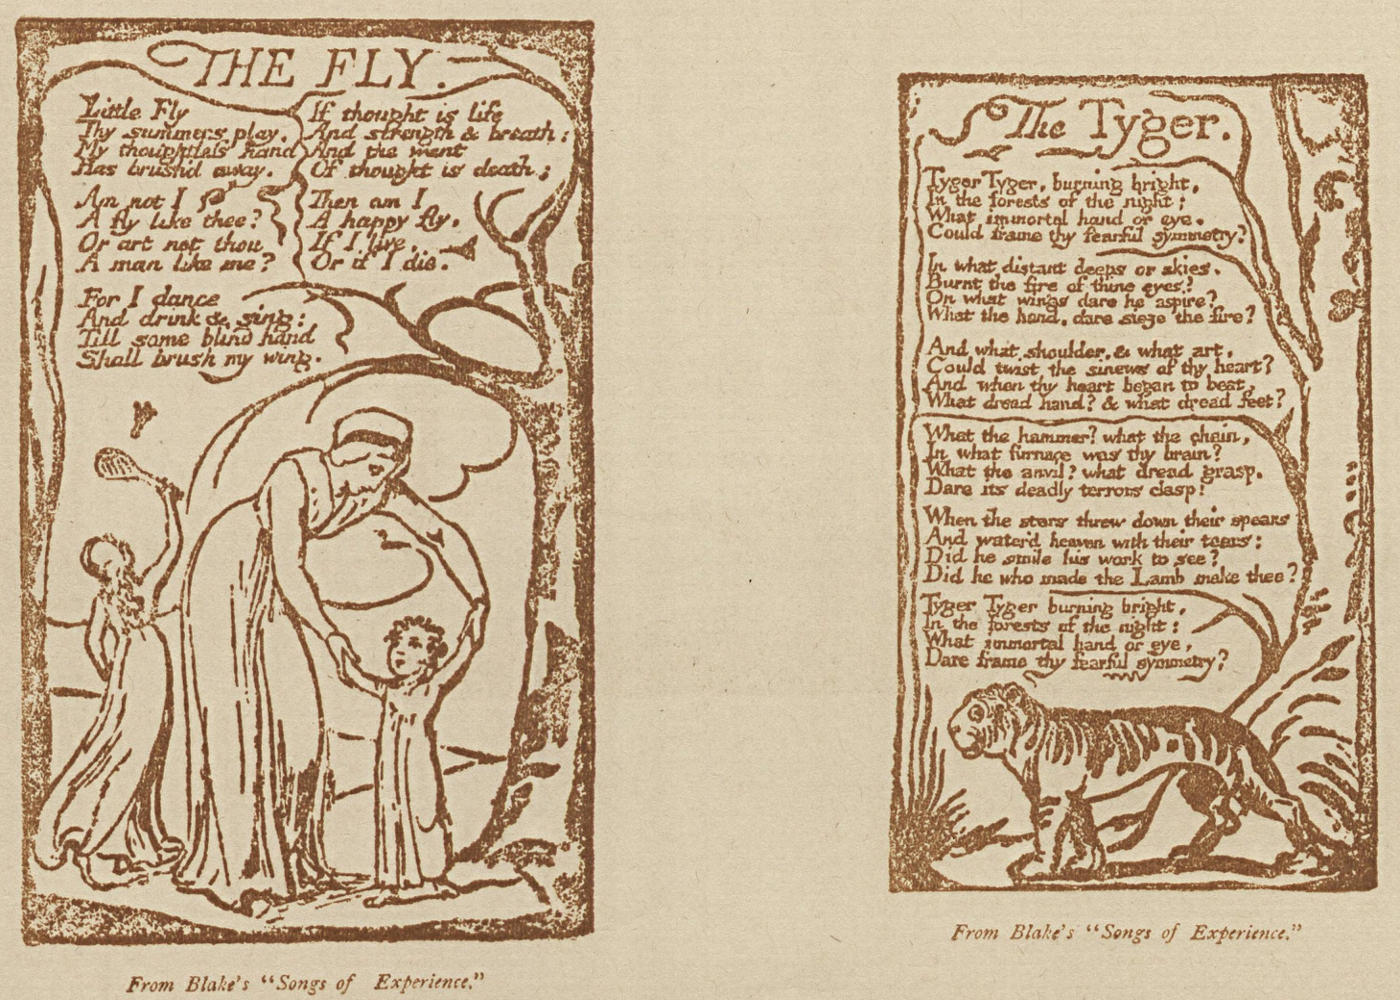 THE FLY.
Little Fly
Thy summers play,
My thoughtless hand
Has brush'd away.
Am not I
A fly like thee?
Or art not thou
A man like me?
For I dance
And drink & sing:
Till some blind hand
Shall brush my wing.
If thought is life
And strength & breath:
And the want
Of thought is death;
Then am I
A happy fly,
If I live,
Or if I die.
From Blake's "Songs of Experience."
The Tyger.
Tyger Tyger, burning bright,
In the forests of the night;
What immortal hand or eye,
Could frame thy fearful symmetry?
In what distant deeps or skies,
Burnt the fire of thine eyes?
On what wings dare he aspire?
What the hand, dare sieze the fire?
And what shoulder, & what art,
Could twist the sinews of thy heart?
And when thy heart began to beat,
What dread hand? & what dread feet?
What the hammer? what the chain,
In what furnace was thy brain?
What the anvil? what dread grasp,
Dare its deadly terrors clasp!
When the stars threw down their spears
And water'd heaven with their tears:
Did he smile his work to see?
Did he who made the Lamb make thee?
Tyger Tyger burning bright,
In the forests of the night:
What immortal hand or eye,
Dare frame thy fearful symmetry?
From Blake's "Songs of Experience."